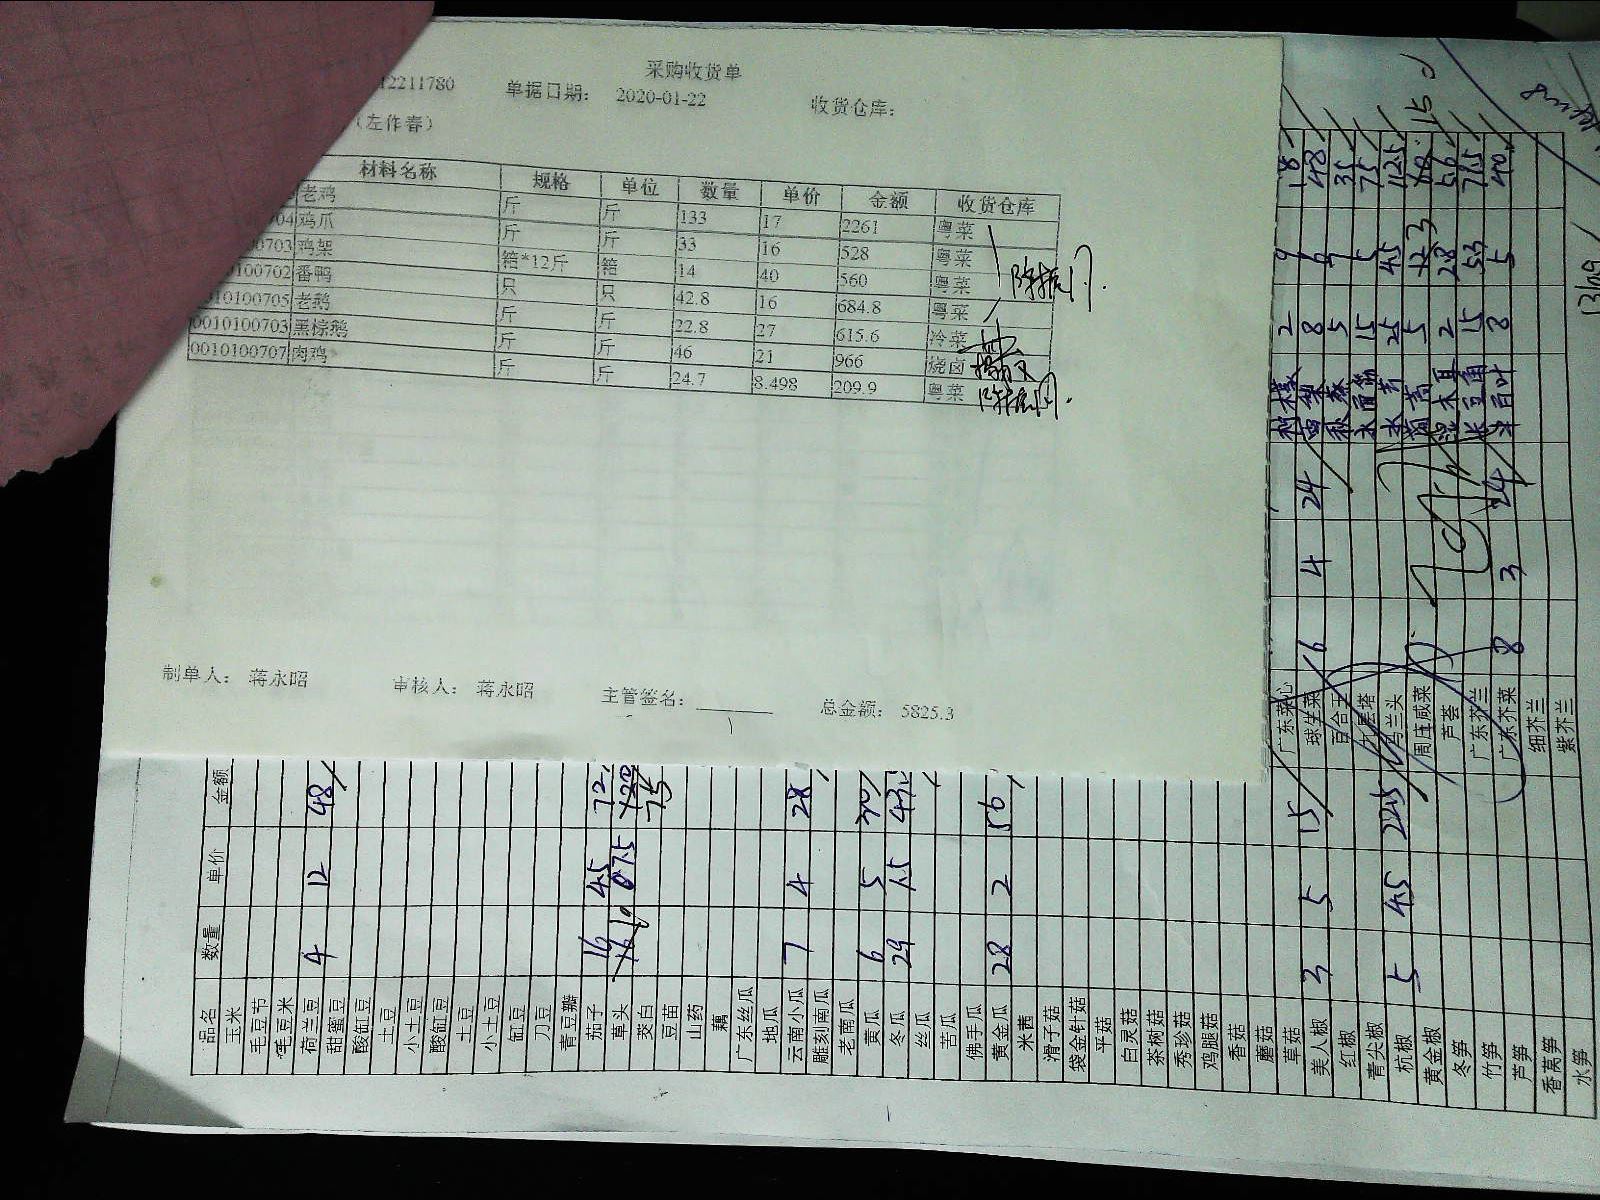 采购收货单
12211780 单据日期: 2020-01-22 收货仓库:
(左作春)
材料名称 规格 单位 数量 单价 金额 收货仓库
老鸡 斤 斤 133 17 2261 粤菜
04 鸡爪 斤 斤 33 16 528 粤菜
00703 鸡架 箱*12斤 箱 14 40 560 粤菜
0100702 番鸭 只 只 42.8 16 684.8 粤菜
0010100705 老鹅 斤 斤 22.8 27 615.6 冷菜
0010100703 黑棕鹅 斤 斤 46 21 966 烧卤
0010100707 肉鸡 斤 斤 24.7 8.498 209.9 粤菜
制单人: 蒋永昭 审核人: 蒋永昭 主管签名: 总金额: 5825.3
品名 数量 单价 金额
玉米
毛豆节
毛豆米
荷兰豆 4 12 48
甜蜜豆
酸缸豆
土豆
小土豆
酸缸豆
土豆
小土豆
缸豆
刀豆
青豆瓣
茄子 16 4.5 72
草头 10 0.75
茭白 75
豆苗
山药
藕
广东丝瓜
地瓜
云南小瓜 7 4 28
雕刻南瓜
老南瓜
黄瓜 6 5 30
冬瓜 29 1.5
丝瓜
苦瓜
佛手瓜
黄金瓜 28 2 56
米茜
滑子菇
袋金针菇
平菇
白灵菇
茶树菇
秀珍菇
鸡腿菇
香菇
蘑菇
草菇
美人椒 3 5 15
红椒
青尖椒
杭椒 5 4.5 22.5
黄金椒
冬笋
竹笋
芦笋
香莴笋
水笋
广东菜心
球生菜 6 4 24
百合王
九层塔
马兰头
周庄咸菜
芦荟
广东芥兰
广东芥菜 8 3 24
细芥兰
紫芥兰
柠檬 2 9 18
西芹 8 6 48
秋葵 5 7 35
水面筋 15 5 75
水芹 25 4.5 112.5
5 12
湿木耳 2 28 56
长豆角 15
牛百叶 8 5 40